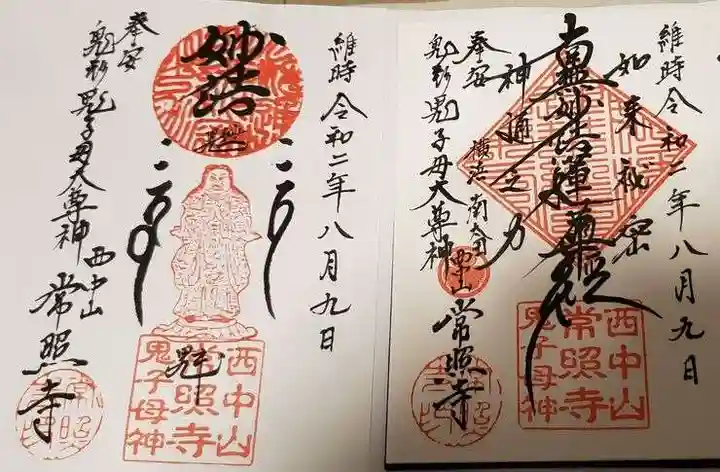 奉安
鬼形鬼子母大尊神
西中山
常照寺
妙諸
維時令和二年八月九日
西中山
常照寺
鬼子母神
奉安
鬼形鬼子母大尊神
横浜南太田
西中山
常照寺
神通之力
南無妙法蓮華経
如来秘密
維時令和二年八月九日
西中山
常照寺
鬼子母神